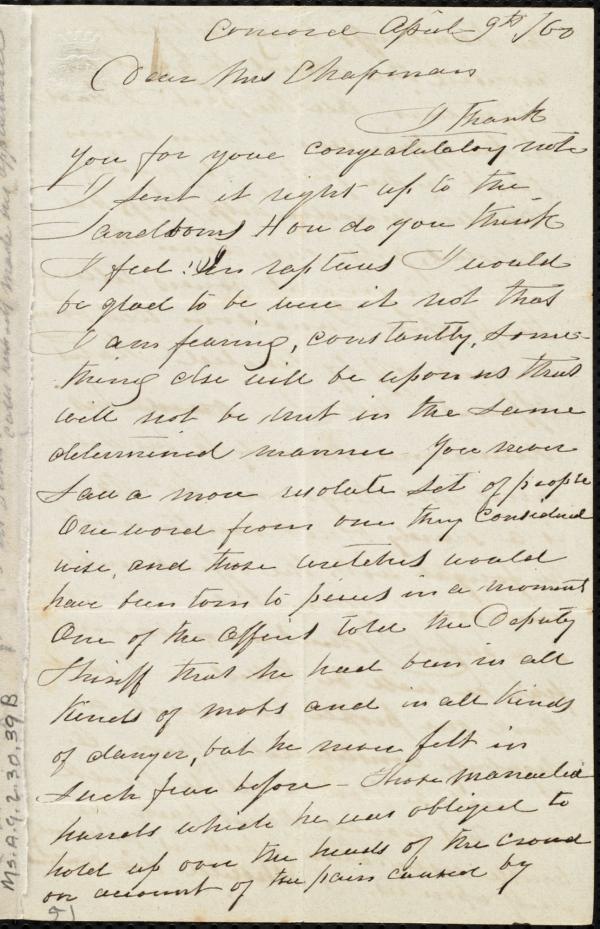 Concord April 9th /60
Dear Mrs Chapman
I thank
you for your congratulatory note
I sent it right up to the
Sandborns How do you think
I feel. In raptures I would
be glad to be were it not that
I am fearing, constantly, some-
thing else will be upon us that
will not be met in the same
determined manner You never
saw a more resolute set of people
One word from one they considered
wise, and those wretches would
have been torn to pieces in a moment
One of the Officers told the Deputy
Sheriff that he had been in all
kinds of mobs and in all kinds
of danger, but he never felt in
such fear before - Those manacled
hands which he was obliged to
hold up over the heads of the crowd
on account of the pain caused by
Ms.A.9.2.30.39B